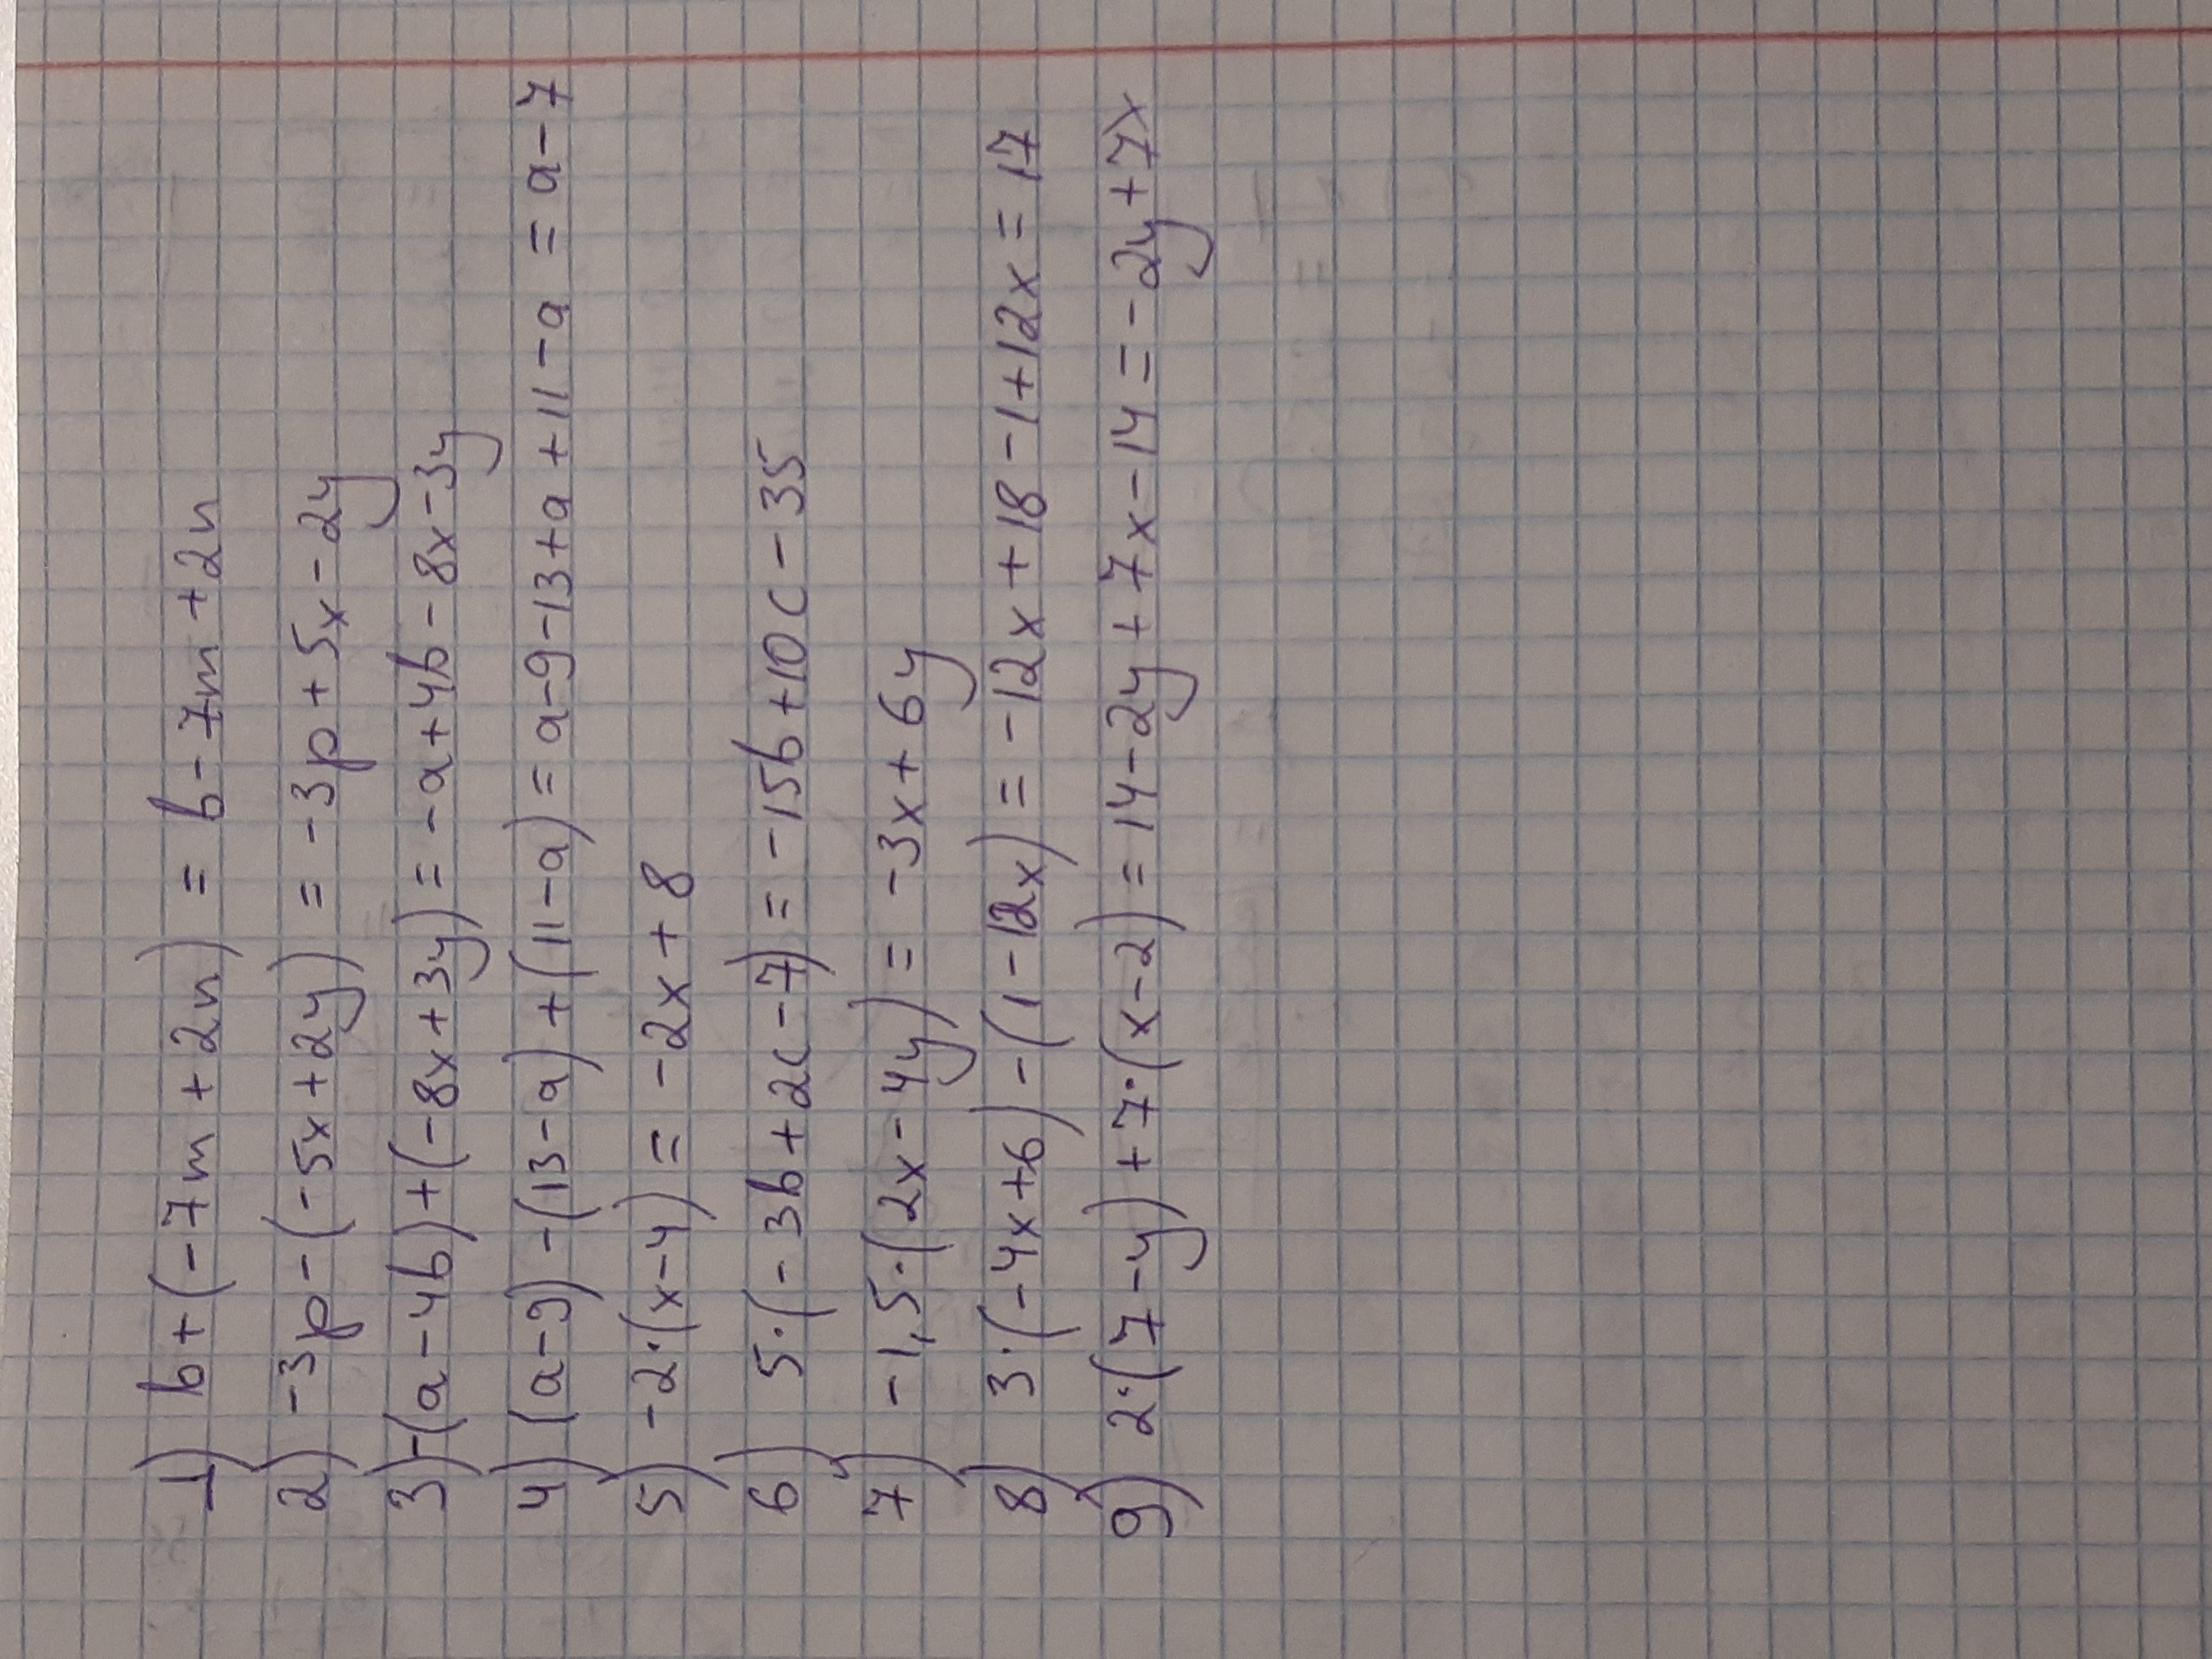 1) b+(-7m+2n) = b-7m+2n
2) -3p-(-5x+2y) = -3p+5x-2y
3) -(a-4b)+(-8x+3y)=-a+4b-8x-3y
4) (a-9)-(13-a)+(11-a)=a-9-13+a+11-a=a-7
5) -2·(x-4)=-2x+8
6) 5·(-3b+2c-7)=-15b+10c-35
7) -1,5·(2x-4y)=-3x+6y
8) 3·(-4x+6)-(1-12x)=-12x+18-1+12x=17
9) 2·(7-y)+7·(x-2)=14-2y+7x-14=-2y+7x